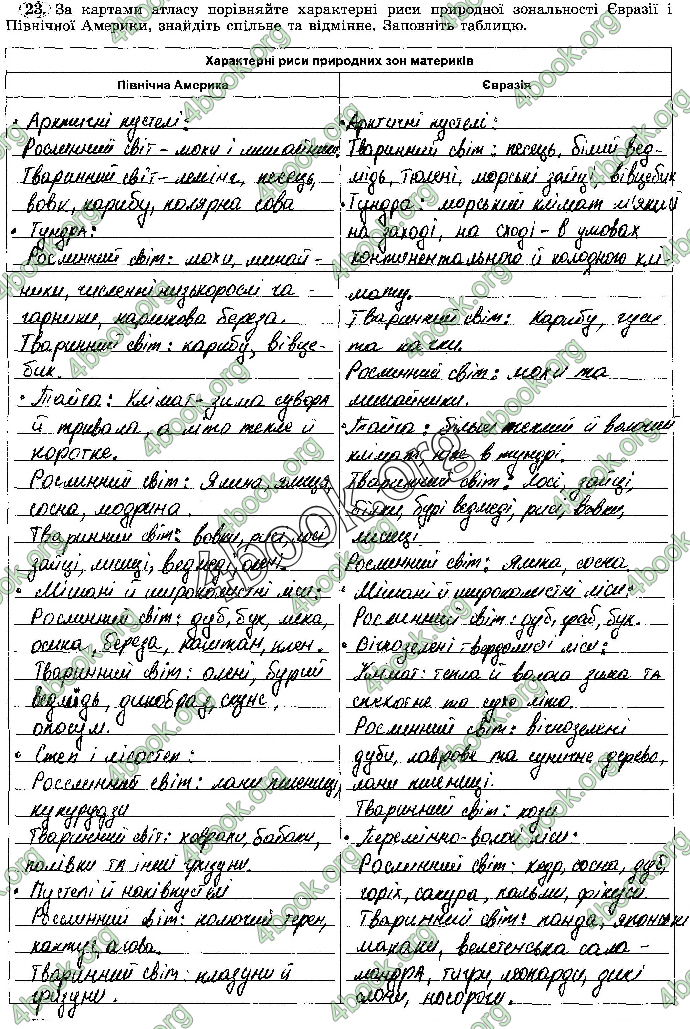 23. За картами атласу порівняйте характерні риси природної зональності Євразії і
Північної Америки, знайдіть спільне та відмінне. Заповніть таблицю.
Характерні риси природних зон материків
Північна Америка
• Арктичні пустелі:
Рослинний світ – мохи і лишайники.
Тваринний світ – лемінг, песець,
вовк, карибу, полярна сова
• Тундра:
Рослинний світ: мохи, лишай-
ники, численні низькорослі ча-
гарники, карликова береза.
Тваринний світ: карибу, вівце-
бик.
• Тайга: Клімат – зима сувора
й тривала, а літо тепле й
коротке.
Рослинний світ: Ялина, ялиця,
сосна, модрина.
Тваринний світ: вовки, рисі, лосі,
зайці, лисиці, ведмеді, олені.
• Мішані й широколисті ліси:
Рослинний світ: дуб, бук, липа,
осика, береза, каштан, клен.
Тваринний світ: олені, бурий
ведмідь, дикобраз, скунс,
опосум.
• Степ і лісостеп:
Росслинний світ: лани пшениці,
кукурудзи
Тваринний світ: ховрахи, бабаки,
полівки та інші гризуни.
• Пустелі й напівпустелі
Рослинний світ: колючий терен,
кактус, агава.
Тваринний світ: плазуни й
гризуни.
Євразія
• Арктичні пустелі:
Тваринний світ: песець, білий вед-
мідь, тюлені, морські зайці, вівцебик
• Тундра: морський клімат м'який
на заході, на сході – в умовах
континентального й холодного клі-
мату.
Тваринний світ: Карибу, гуси
та качки.
Рослинний світ: мохи та
лишайники.
• Тайга: більш теплий й вологий
клімат ніж в тундрі.
Тваринний світ: Лосі, зайці,
білки, бурі ведмеді, рисі, вовки,
лисиці
Рослинний світ: Ялина, сосна
• Мішані й широколисті ліси:
Рослинний світ: дуб, граб, бук.
• Вічнозелені твердолисті ліси:
Клімат: тепла й волога зима та
спекотне та сухе літо.
Рослинний світ: вічнозелені
дуби, лаврове та суничне дерево,
лани пшениці.
Тваринний світ: кози
• Перемінно-вологі ліси:
Рослинний світ: кедр, сосна, дуб,
горіх, сакура, пальми, фікуси.
Тваринний світ: панда, японські
макаки, велетенська сала-
мандра, тигри, леопарди, дикі
слони, носороги.
4book.org